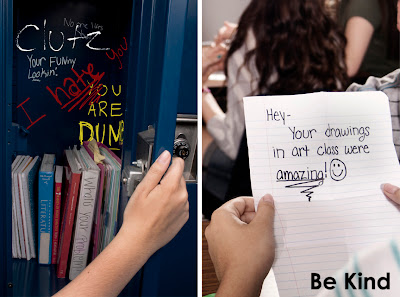 No one
Clutz
YOUR FUNNY
Lookin'!
I hate you
YOU
ARE
DUM
LITERATU
Hey-
Your drawings
in art class were
amazing!
Be Kind